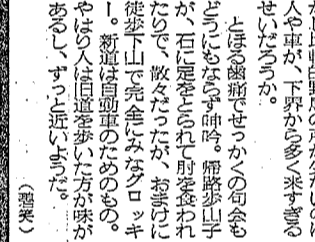 比較的野鳥の声が少ないのは
人や車が、下界から多く来すぎる
せいだろうか。
とほる歯痛でせっかくの句会も
どうにもならず呻吟。帰路歩山子
が、石に足をとられて肘を食われ
たりで、散々だったが、おまけに
徒歩下山で完全にみなグロッキ
ー。新道は自動車のためのもの。
やはり人は旧道を歩いた方が味が
あるし、ずっと近いようだ。
（碧笑）